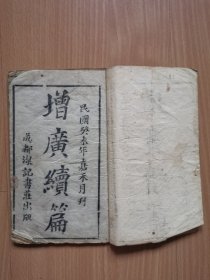 民國癸未年嘉禾月刊
增廣續篇
成都記書莊出版